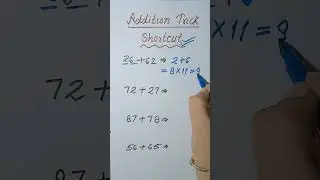 Addition Trick
Shortcut
26 + 62 ⇒ 2+6
= 8 × 11 = 8
× 11 = 8
72 + 27 ⇒
87 + 78 ⇒
56 + 65 ⇒